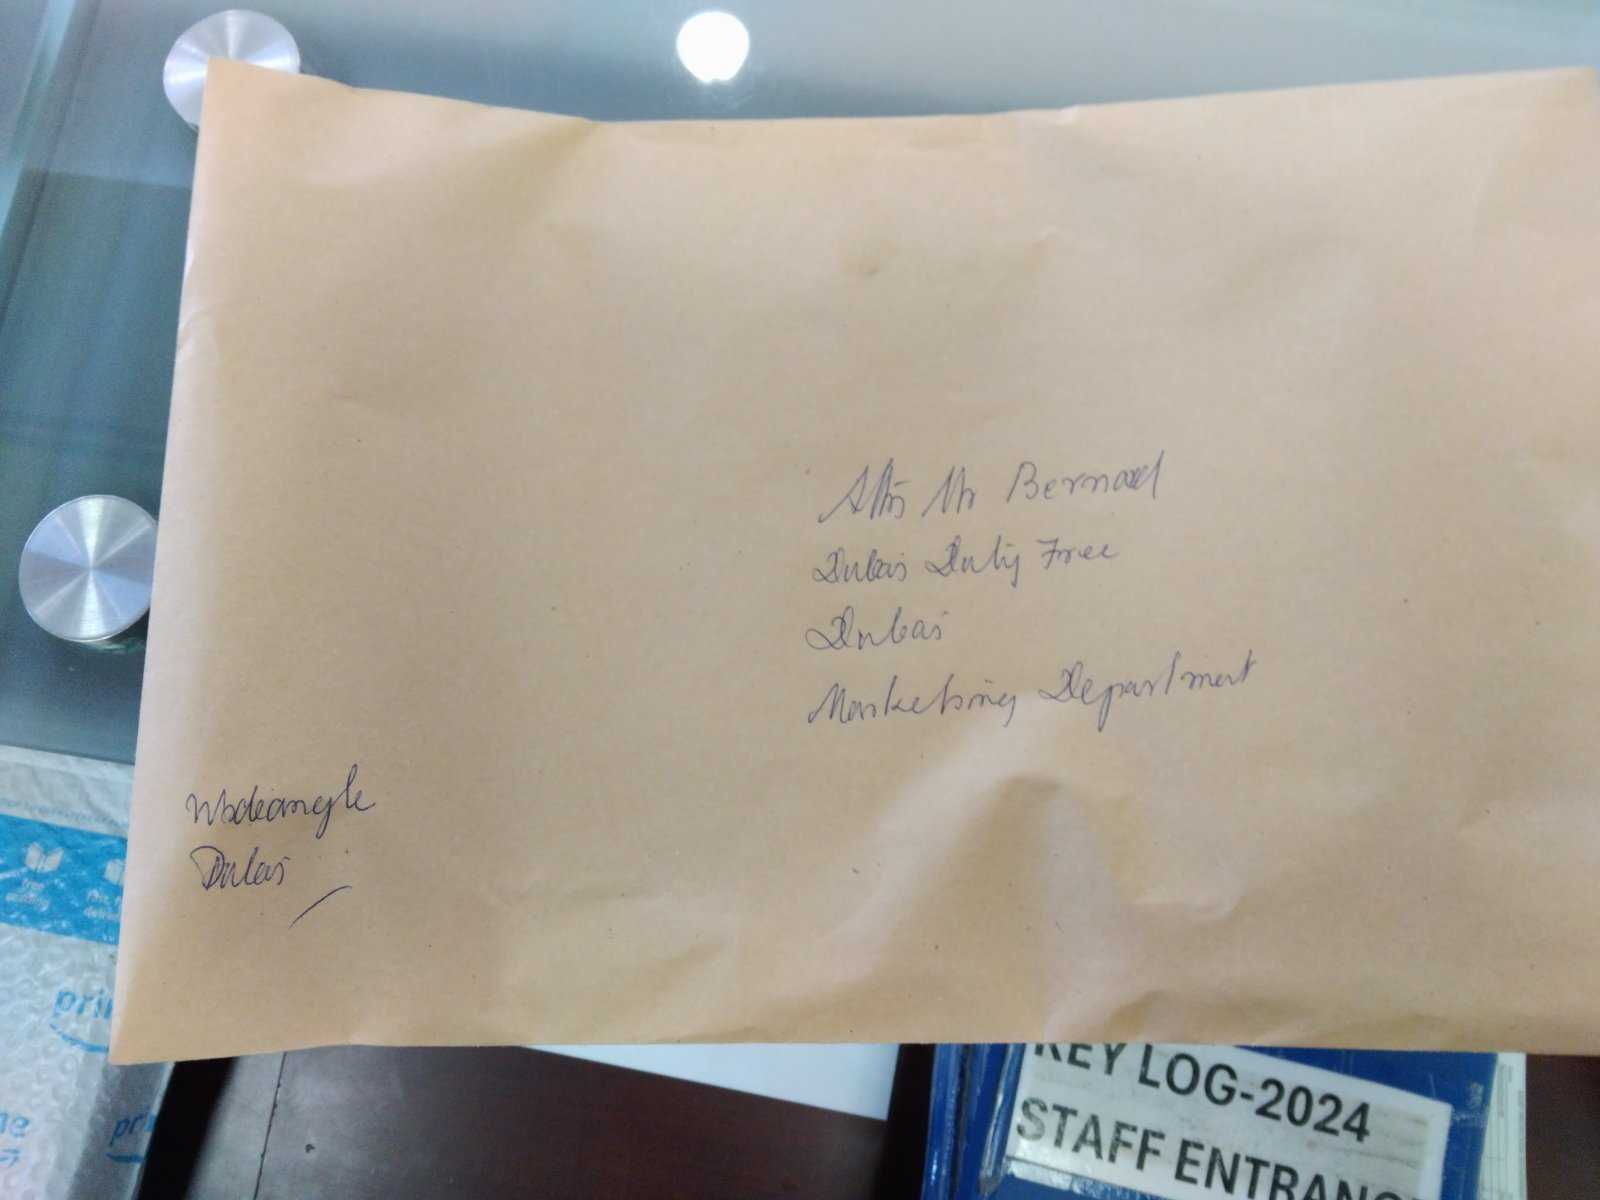 Attn Mr Bernard
Dubai Duty Free
Dubai
Marketing Department
Wideangle
Dubai
prime
KEY LOG-2024
STAFF ENTRANC